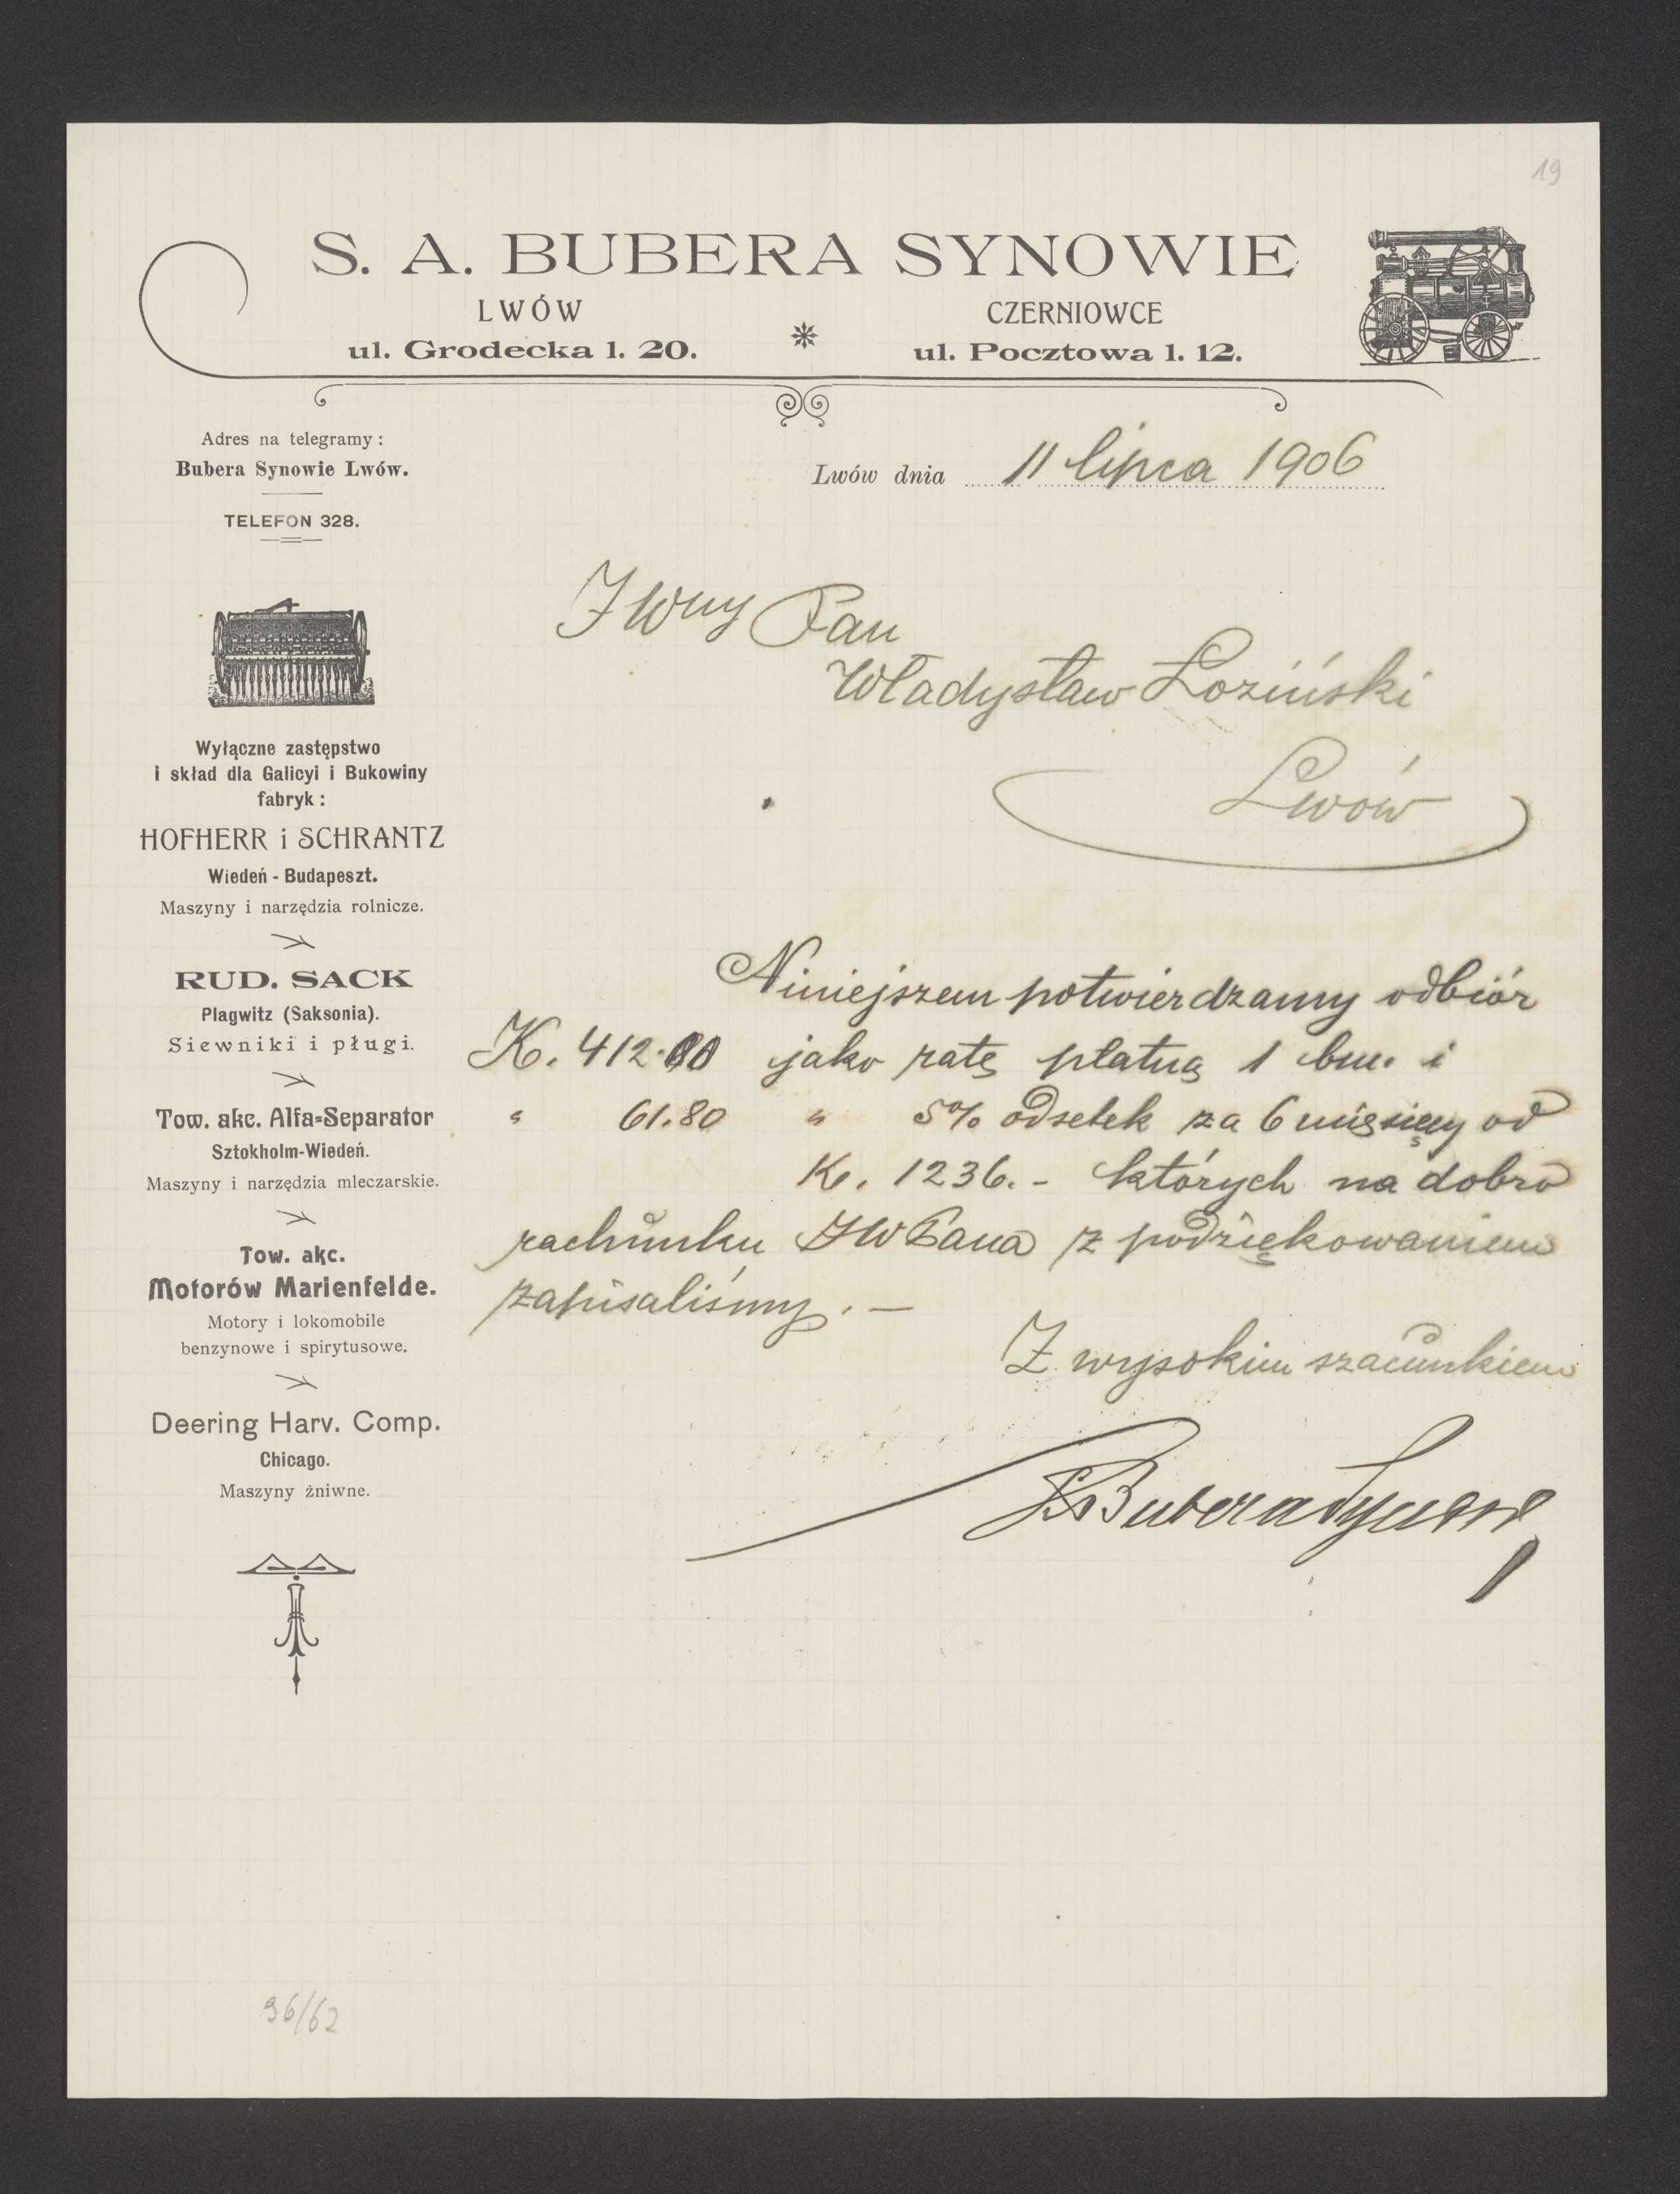 19
S. A. BUBERA SYNOWIE
LWÓW
ul. Grodecka l. 20.
CZERNIOWCE
ul. Pocztowa l. 12.
Adres na telegramy:
Bubera Synowie Lwów.
TELEFON 328.
Wyłączne zastępstwo
i skład dla Galicyi i Bukowiny
fabryk:
HOFHERR i SCHRANTZ
Wiedeń - Budapeszt.
Maszyny i narzędzia rolnicze.
RUD. SACK
Plagwitz (Saksonia).
Siewniki i pługi.
Tow. akc. Alfa-Separator
Sztokholm-Wiedeń.
Maszyny i narzędzia mleczarskie.
Tow. akc.
Motorów Marienfelde.
Motory i lokomobile
benzynowe i spirytusowe.
Deering Harv. Comp.
Chicago.
Maszyny żniwne.
Lwów dnia 11 lipca 1906
JWny Pan
Władysław Łoziński
Lwów
Niniejszem potwierdzamy odbiór
K. 412. jako ratę płatną 1 bm. i
" 61.80 " 5% odsetek za 6 miesięcy od
K. 1236.- których na dobro
rachunku JWPana z podziękowaniem
zapisaliśmy. —
Z wysokim szacunkiem
Bubera Synowie
96/62